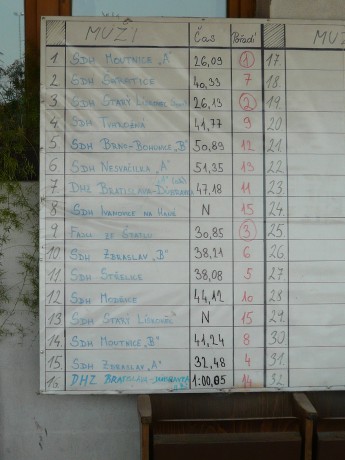 MUŽI Čas Pořadí MUŽ
1 SDH MOUTNICE „A" 26,09 1 17.
2 SDH 40,33 7 18.
3 SDH STARÝ LÍSKOVEC 26,13 2 19.
4 SDH TVAROŽNÁ 41,77 9 20.
5 SDH BRNO-BOHUNICE „B" 50,89 12 21.
6 SDH NESVAČILKA „A" 51,35 13 22.
7 DHZ BRATISLAVA-DÚBRAVKA 47,18 11 23.
8 SDH IVANOVICE NA HANÉ N 15 24.
9 30,85 3 25.
10 SDH ZBRASLAV „B" 38,21 6 26.
11 SDH STŘELICE 38,08 5 27.
12 SDH MODŘICE 44,12 10 28.
13 SDH STARÝ LÍSKOVEC N 15 29.
14. SDH MOUTNICE „B" 41,24 8 30.
15. SDH ZBRASLAV „A" 32,48 4 31.
16 DHZ 1:00,05 14 32.